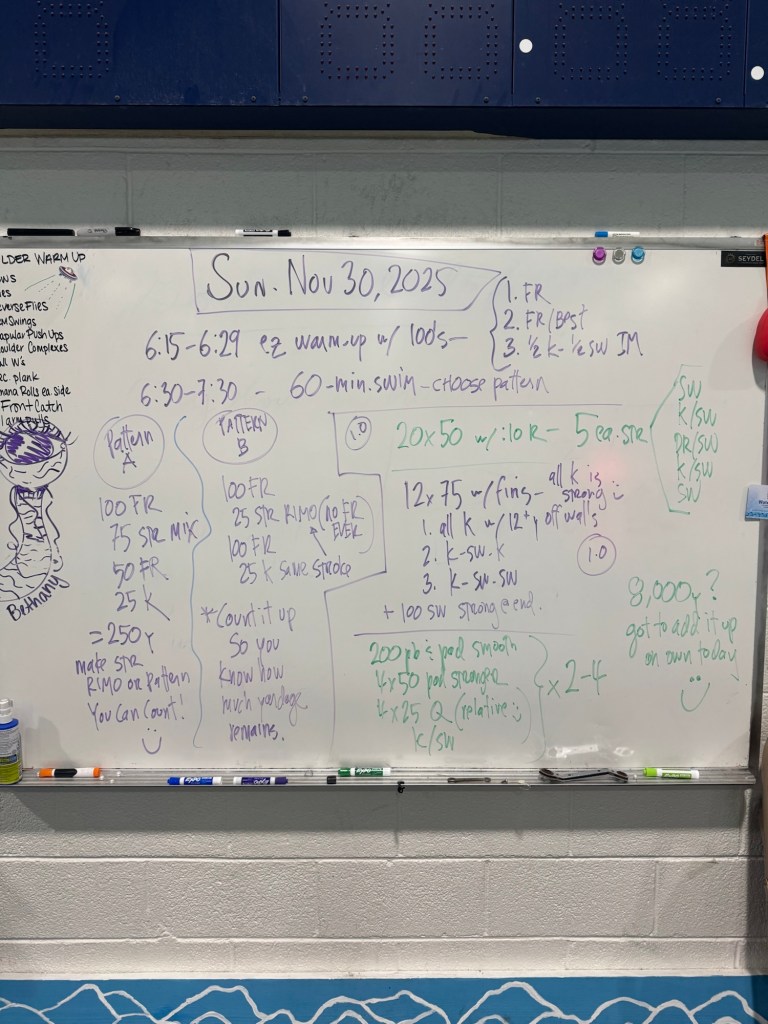 LDER WARM UP
everse Flies
m Swings
apular Push Ups
oulder Complexes
W's
RC. plank
nana Rolls ea. side
Front Catch
Bethany
SUN. NOV 30, 2025
6:15-6:29 ez warm-up w/ 100's-
1. FR
2. FR/Best
3. ½ K - ½ SW IM
6:30-7:30 - 60-min. swim - choose pattern
Pattern
A
100 FR
75 STR MIX
50 FR
25 K
= 250 Y
make STR
RIMO or pattern
You Can Count!
PATTERN
B
100 FR
25 STR RIMO (no FR EVER)
100 FR
25 K same stroke
*Count it up
So you
know how
much yardage
remains.
1.0
20x50 w/ :10 R - 5 ea. STR
SW
K/SW
DR/SW
K/SW
SW
12x75 w/ fins- all K is strong
1. all K w/ 12+y off walls
2. K-SW-K
3. K-SW-SW
1.0
+ 100 SW strong @ end.
200 pb & pad smooth
4x50 pad stronger
4x25 Q (relative)
K/SW
x 2-4
8,000y?
got to add it up
on own today
SEYDEL
EXPO
EXPO
EXPO